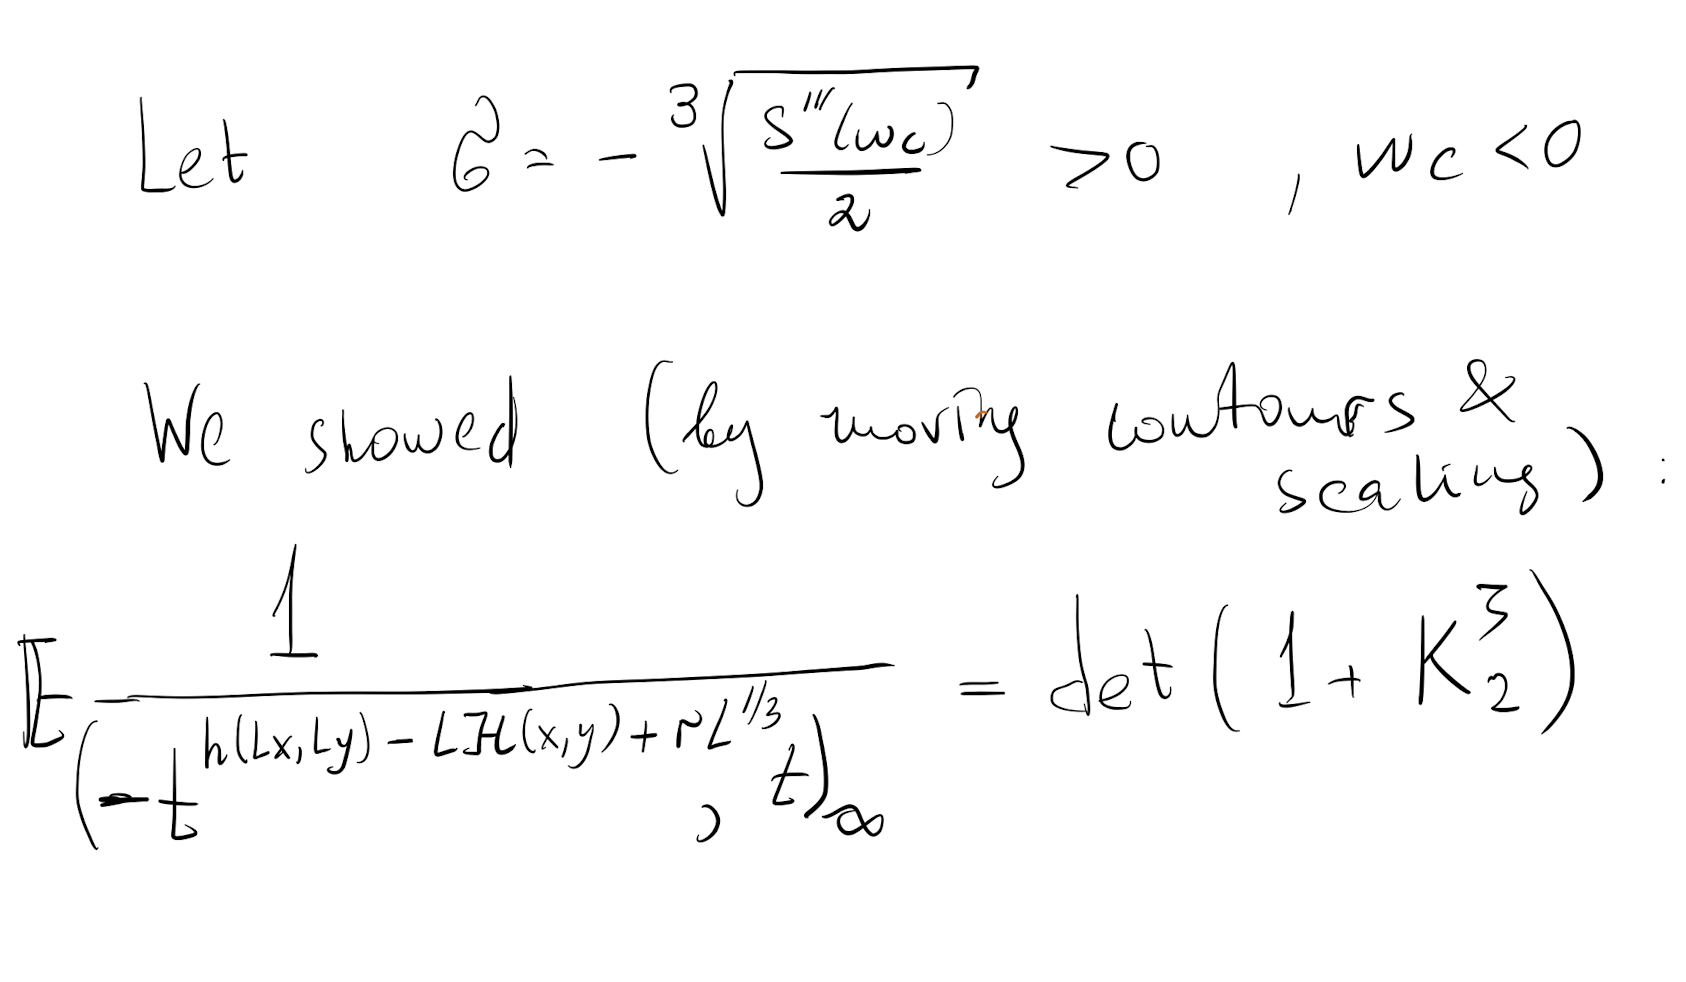 Let σ̃ = - ∛(S'''(w_c)/2) > 0 , w_c < 0
We showed (by moving contours &
scaling) :
𝔼 1/(-t^{h(Lx,Ly) - Lℋ(x,y) + rL^{1/3}} , t)_∞ = det(1 + K_2^3)